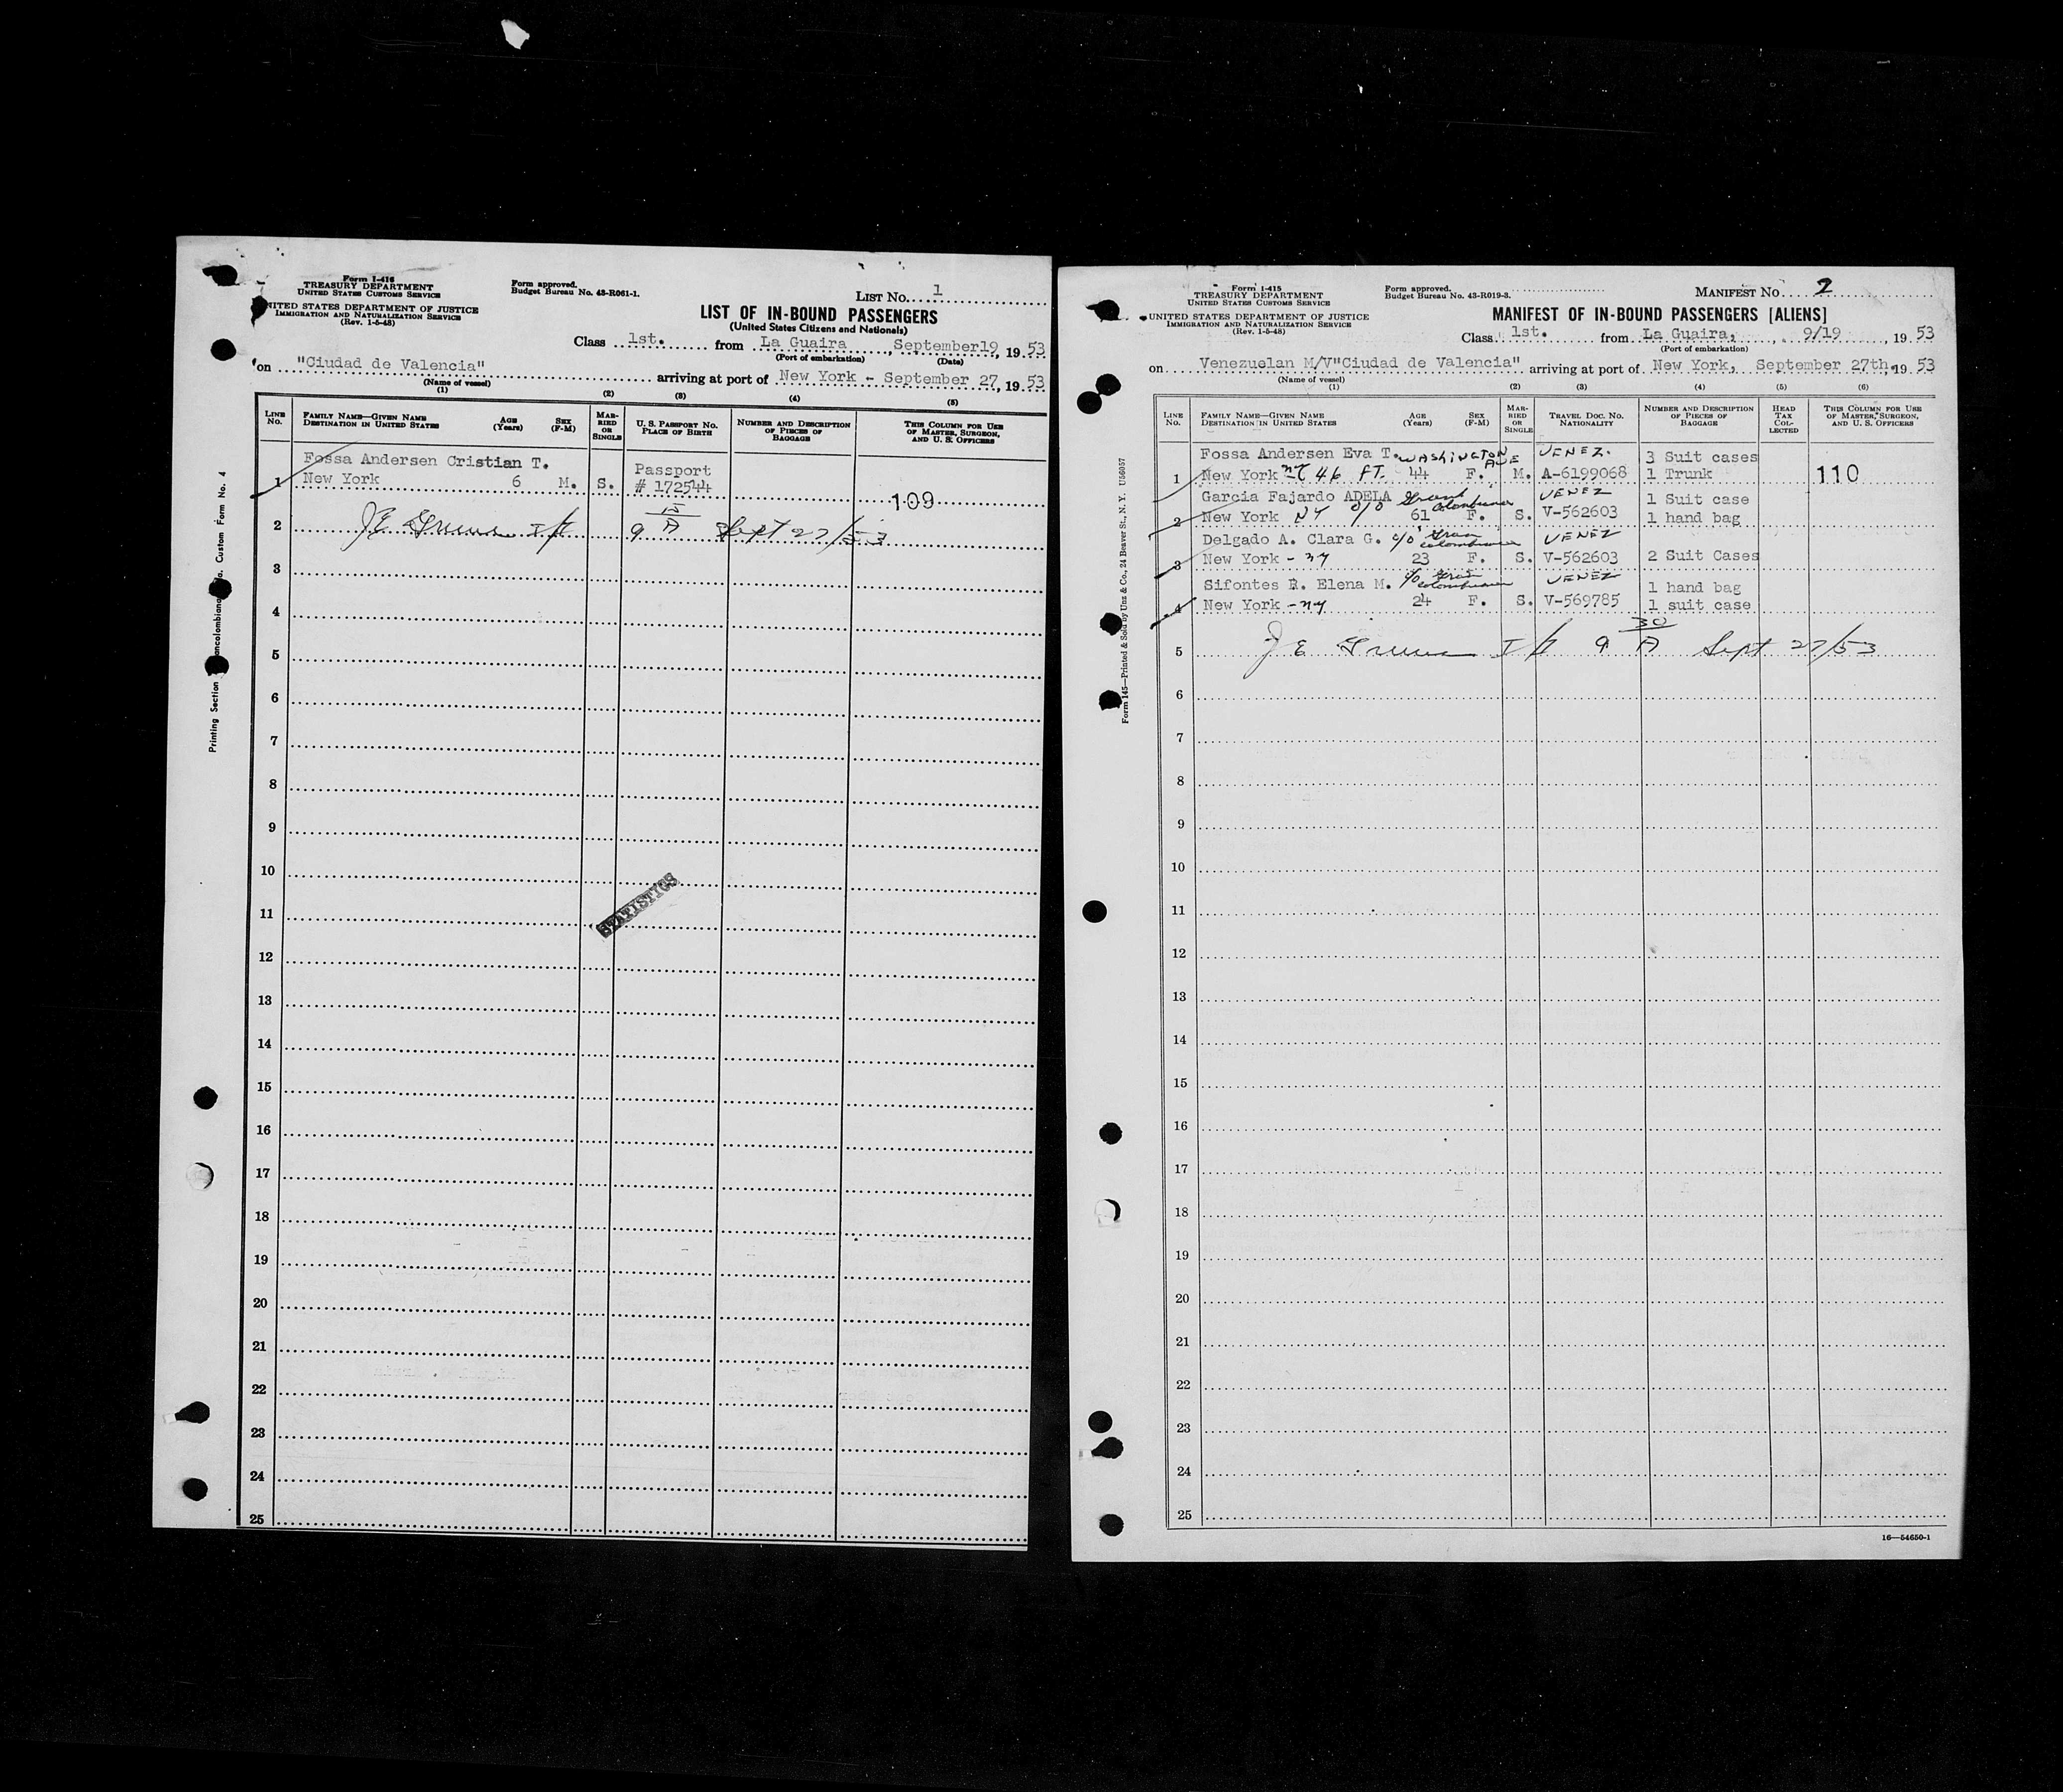 Form I-416
TREASURY DEPARTMENT
UNITED STATES CUSTOMS SERVICE
UNITED STATES DEPARTMENT OF JUSTICE
IMMIGRATION AND NATURALIZATION SERVICE
(Rev. 1-5-48)
Form approved.
Budget Bureau No. 43-R061-1.
LIST No. 1
LIST OF IN-BOUND PASSENGERS
(United States Citizens and Nationals)
Class 1st. from La Guaira, September19, 1953
(Port of embarkation) (Date)
on "Ciudad de Valencia" arriving at port of New York - September 27, 1953
(Name of vessel)
(1) (2) (3) (4) (5)
LINE No. FAMILY NAME—GIVEN NAME DESTINATION IN UNITED STATES AGE (Years) SEX (F-M) MARRIED OR SINGLE U. S. PASSPORT NO. PLACE OF BIRTH NUMBER AND DESCRIPTION OF PIECES OF BAGGAGE THIS COLUMN FOR USE OF MASTER, SURGEON, AND U. S. OFFICERS
Fossa Andersen Cristian T. Passport
1 New York 6 M. S. # 172544 109
2 J E I/I 9 15 A Sept 27/53
3
4
5
6
7
8
9
10
11
STATISTICS
12
13
14
15
16
17
18
19
20
21
22
23
24
25
Printing Section
Custom Form No. 4
Form I-415
TREASURY DEPARTMENT
UNITED STATES CUSTOMS SERVICE
UNITED STATES DEPARTMENT OF JUSTICE
IMMIGRATION AND NATURALIZATION SERVICE
(Rev. 1-5-48)
Form approved.
Budget Bureau No. 43-R019-3.
MANIFEST No 2
MANIFEST OF IN-BOUND PASSENGERS [ALIENS]
Class 1st. from La Guaira, 9/19, 1953
(Port of embarkation)
on Venezuelan M/V"Ciudad de Valencia" arriving at port of New York, September 27th, 1953
(Name of vessel)
(1) (2) (3) (4) (5) (6)
LINE No. FAMILY NAME—GIVEN NAME DESTINATION IN UNITED STATES AGE (Years) SEX (F-M) MARRIED OR SINGLE TRAVEL DOC. NO. NATIONALITY NUMBER AND DESCRIPTION OF PIECES OF BAGGAGE HEAD TAX COLLECTED THIS COLUMN FOR USE OF MASTER, SURGEON, AND U. S. OFFICERS
Fossa Andersen Eva T. WASHINGTON AVE VENEZ. 3 Suit cases
1 New York 46 FT. 44 F. M. A-6199068 1 Trunk 110
Garcia Fajardo ADELA c/o Gran Colombiana VENEZ 1 Suit case
2 New York NY 61 F. S. V-562603 1 hand bag
Delgado A. Clara G. c/o Gran Colombiana VENEZ
3 New York - NY 23 F. S. V-562603 2 Suit Cases
Sifontes R. Elena M. c/o Gran Colombiana VENEZ 1 hand bag
4 New York - NY 24 F. S. V-569785 1 suit case
5 J E I/I 9 30 A Sept 27/53
6
7
8
9
10
11
12
13
14
15
16
17
18
19
20
21
22
23
24
25
16—54650-1
Form 145—Printed & Sold by Unz & Co., 24 Beaver St., N. Y.